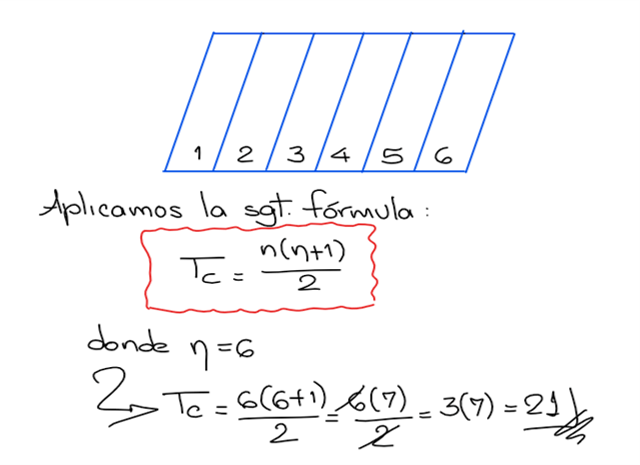 1 2 3 4 5 6
Aplicamos la sgt. fórmula:
Tc = n(n+1)/2
donde n=6
Tc = 6(6+1)/2 = 6(7)/2 = 3(7) = 21